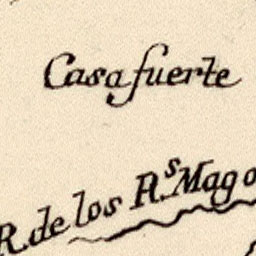 Casafuerte
R. de los R.s Mago